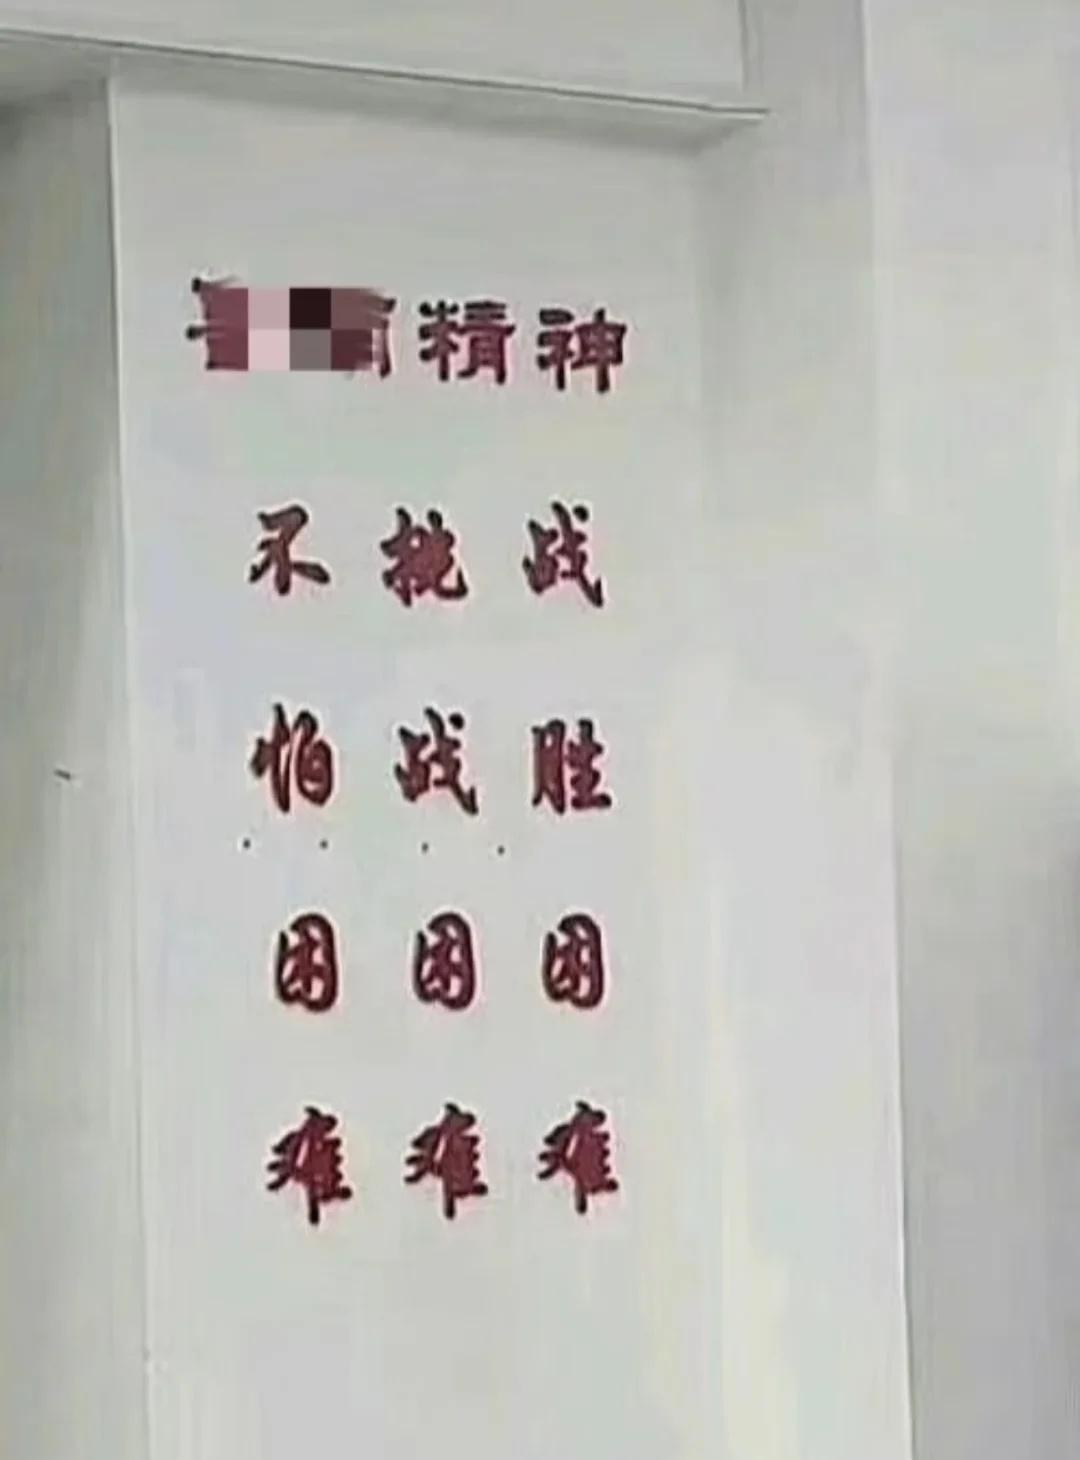 精神
不怕困难
挑战困难
战胜困难